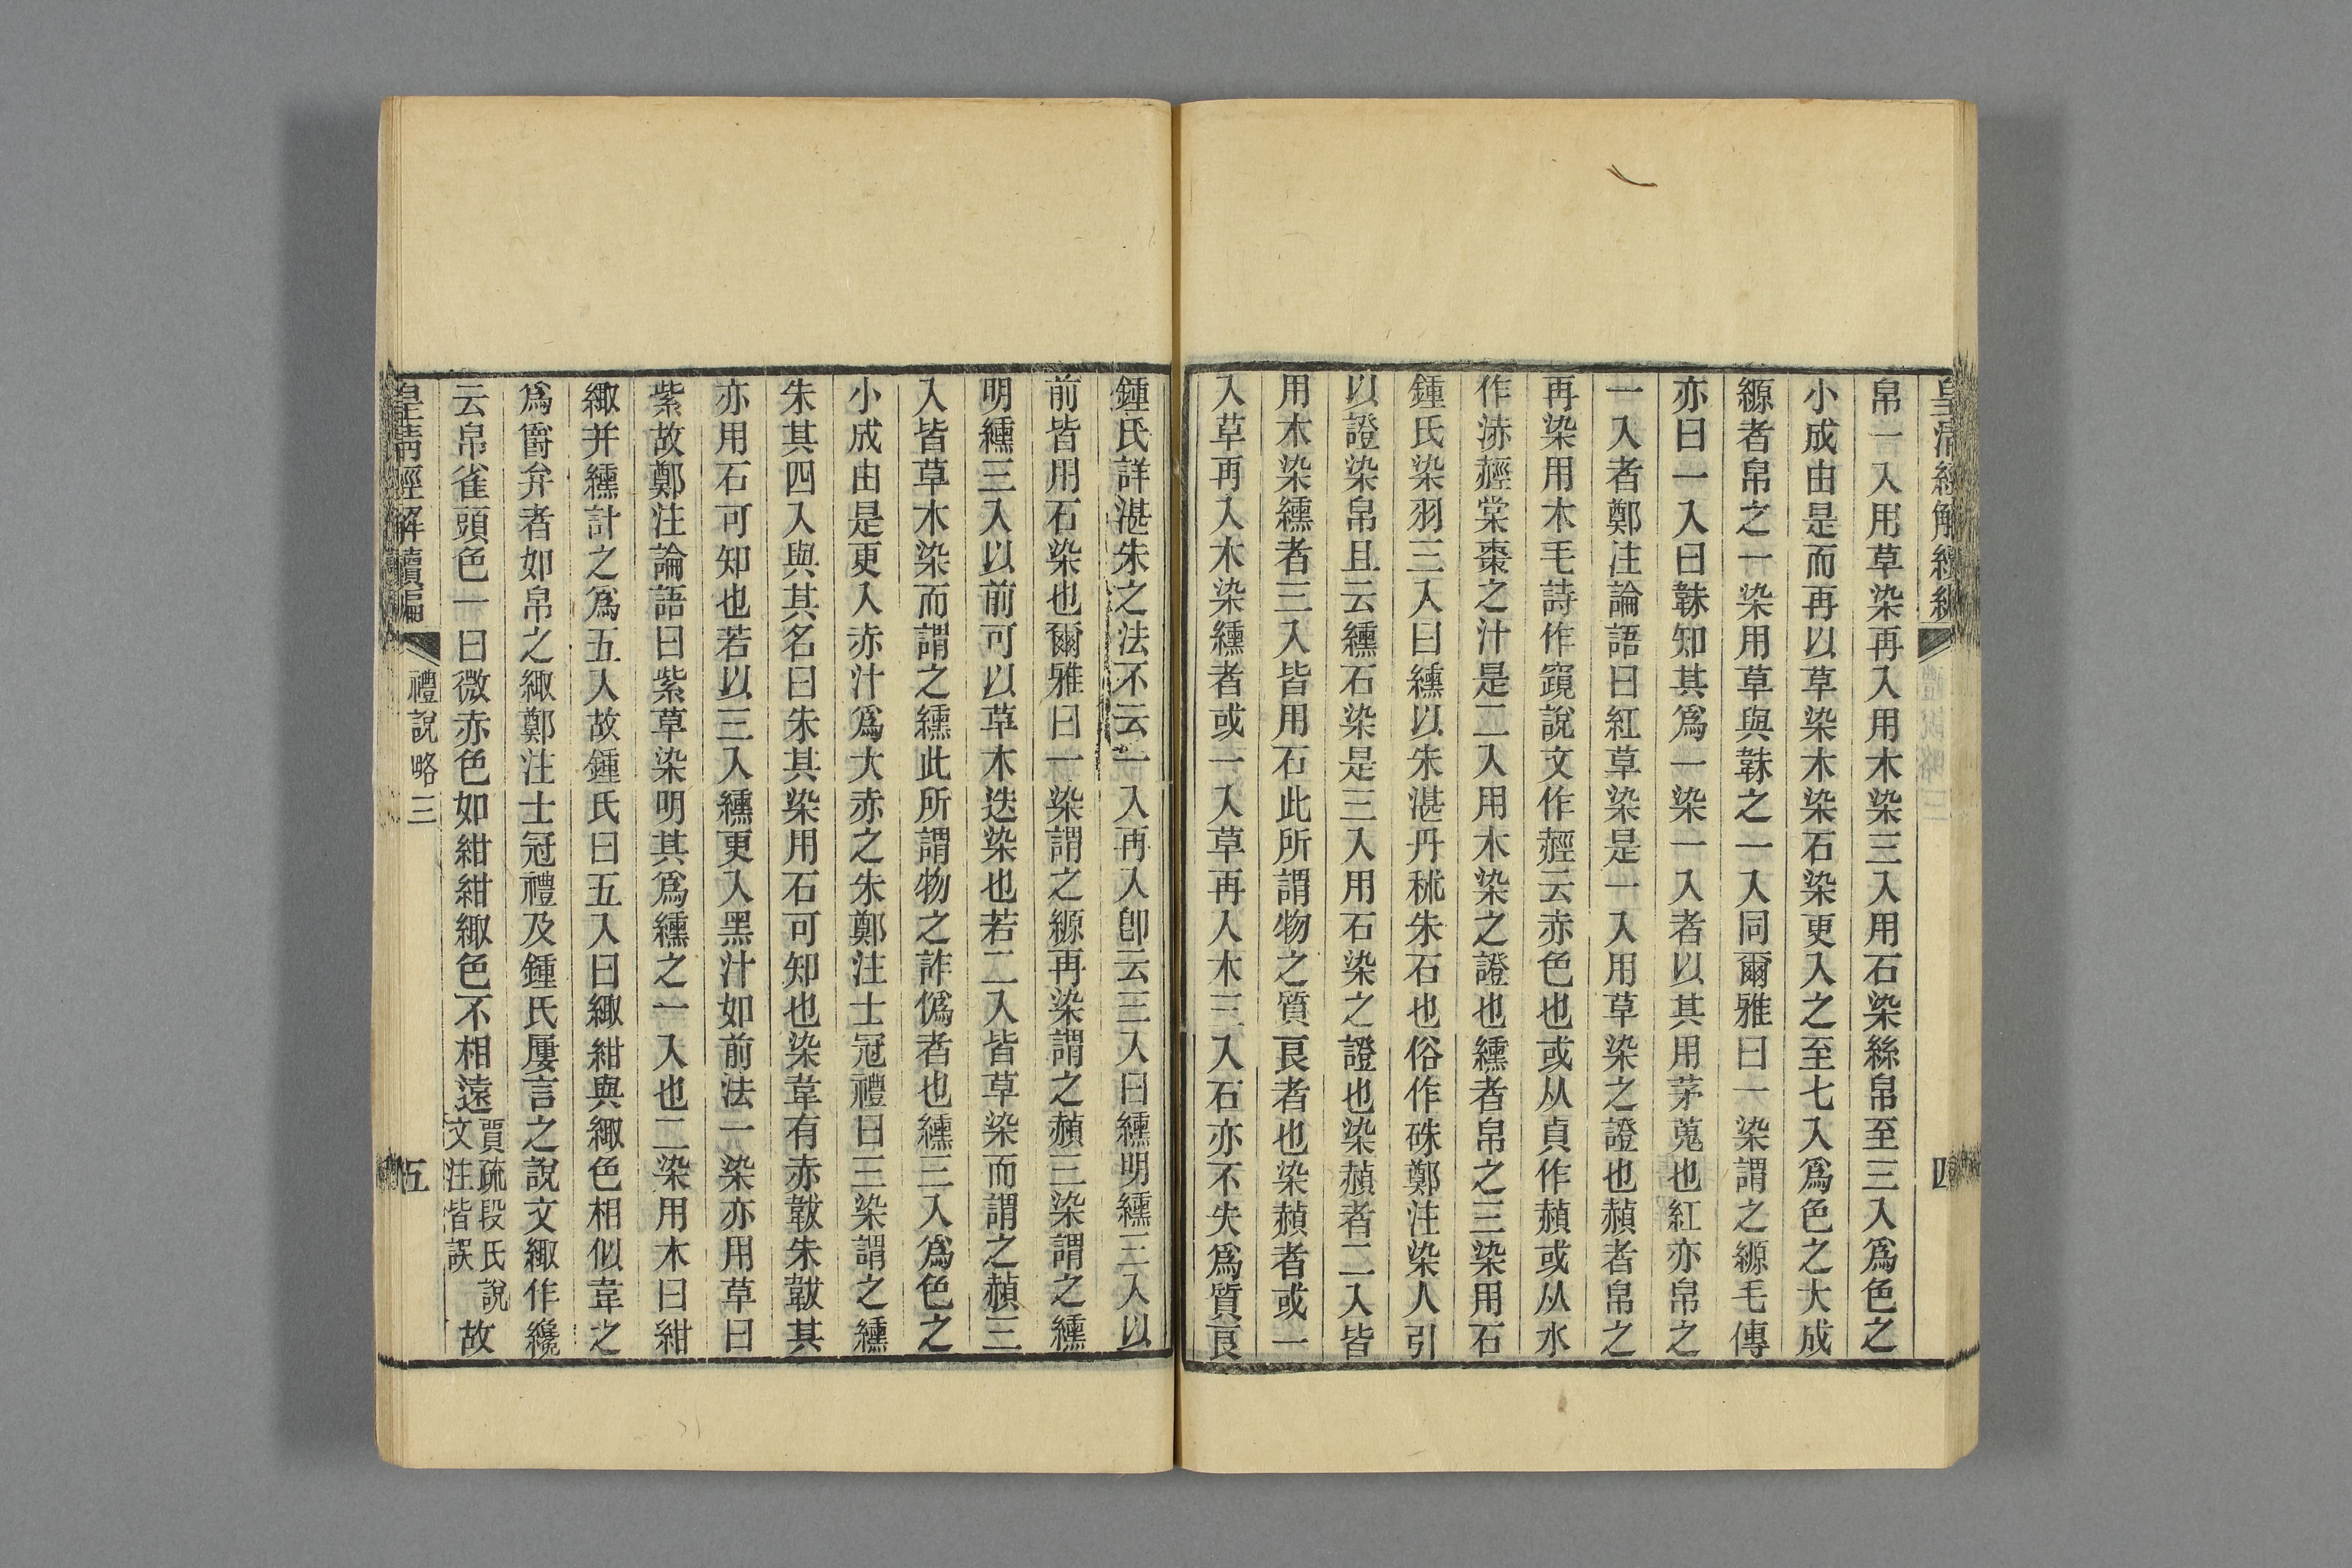 帛一入用草染再入用木染三入用石染絲帛至三入爲色之
小成由是而再以草染木染石染更入之至七入爲色之大成
縓者帛之一染用草與韎之一入同爾雅曰一染謂之縓毛傳
亦曰一入曰韎知其爲一染一入者以其用茅蒐也紅亦帛之
一入者鄭注論語曰紅草染是一入用草染之證也赬者帛之
再染用木毛詩作竀說文作䞓云赤色也或从貞作赬或从水
作浾䞓棠棗之汁是二入用木染之證也纁者帛之三染用石
鍾氏染羽三入曰纁以朱湛丹秫朱石也俗作硃鄭注染人引
以證染帛且云纁石染是三入用石染之證也染赬者二入皆
用木染纁者三入皆用石此所謂物之質良者也染赬者或一
入草再入木染纁者或一入草再入木三入石亦不失爲質良
鍾氏詳湛朱之法不云一入再入卽云三入曰纁明纁三入以
前皆用石染也爾雅曰一染謂之縓再染謂之赬三染謂之纁
明纁三入以前可以草木迭染也若二入皆草染而謂之赬三
入皆草木染而謂之纁此所謂物之詐僞者也纁三入爲色之
小成由是更入赤汁爲大赤之朱鄭注士冠禮曰三染謂之纁
朱其四入與其名曰朱其染用石可知也染韋有赤韍朱韍其
亦用石可知也若以三入纁更入黑汁如前法一染亦用草曰
紫故鄭注論語曰紫草染明其爲纁之一入也二染用木曰紺
緅并纁計之爲五入故鍾氏曰五入曰緅紺與緅色相似韋之
爲爵弁者如帛之緅鄭注士冠禮及鍾氏屢言之說文緅作纔
云帛雀頭色一曰微赤色如紺紺緅色不相遠賈疏段氏說文注皆誤故
皇淸經解續編
禮說略三
五